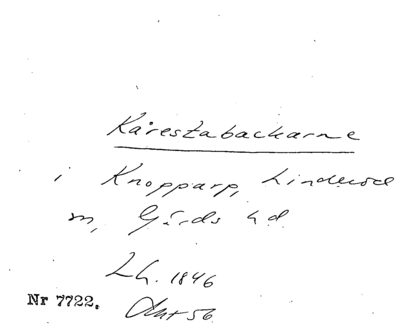 Kårestabackarne
i Knopparp, Linderöd
sn, Gärds hd.
Lh. 1846
Nr 7722.